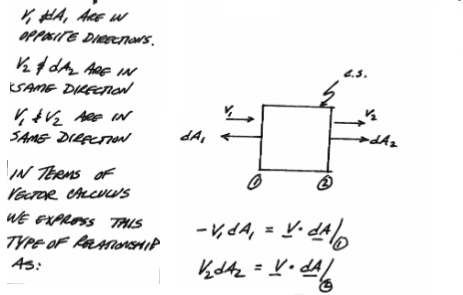 V₁ & dA₁ ARE IN
OPPOSITE DIRECTIONS.
V₂ & dA₂ ARE IN
SAME DIRECTION
V₁ & V₂ ARE IN
SAME DIRECTION
IN TERMS OF
VECTOR CALCULUS
WE EXPRESS THIS
TYPE OF RELATIONSHIP
AS:
c.s.
V₁
V₂
dA₁
dA₂
①
②
-V₁dA₁ = V · dA/①
V₂dA₂ = V · dA/②